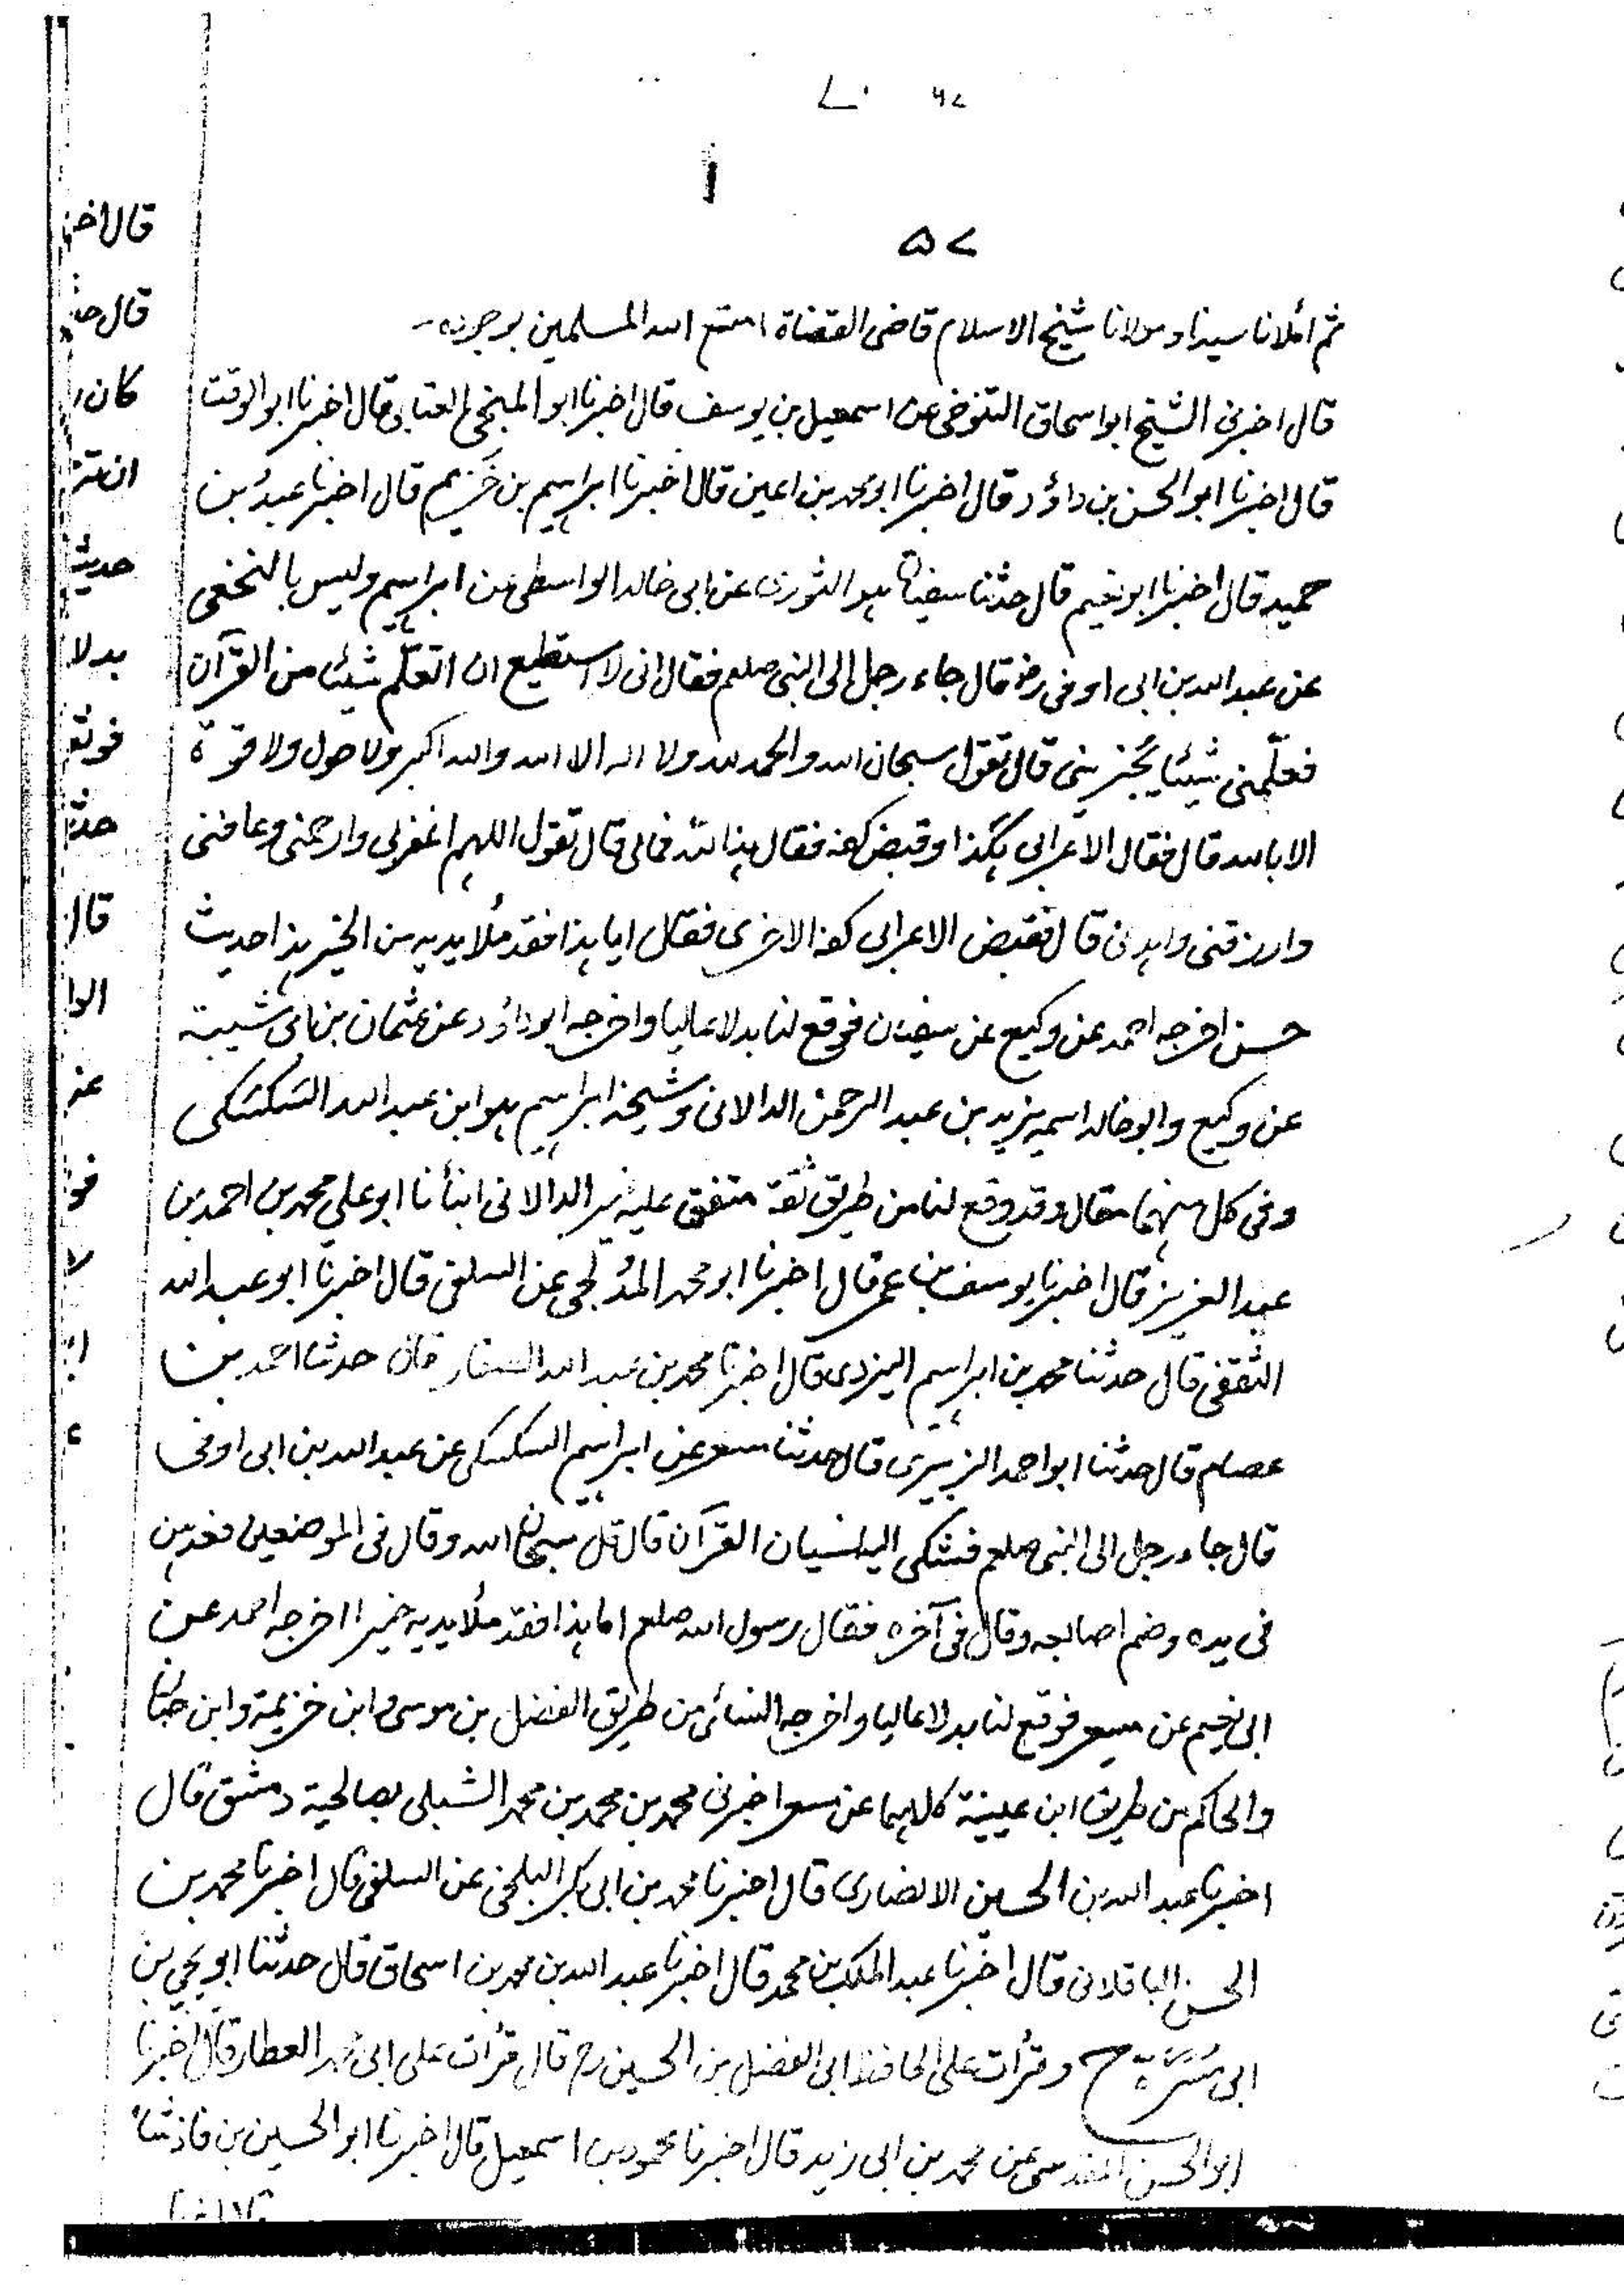 ۵۷
ثم أملانا سيدنا ومولانا شيخ الاسلام قاضى القضاة امتع الله المسلمين بوجوده
قال اخبرنى الشيخ ابو اسحاق التنوخى عن اسمعيل بن يوسف قال اخبرنا ابو المنجى العتابى قال اخبرنا ابو الوقت
قال اخبرنا ابو الحسن بن داؤد قال اخبرنا ابو محمد بن اعين قال اخبرنا ابراهيم بن خَزيم قال اخبرنا عبدُ بن
حميد قال اخبرنا ابو نعيم قال حدثنا سفيان هو الثورى عن ابى خالد الواسطى عن ابراهيم وليس بالنخعى
عن عبد الله بن ابى اوفى رض قال جاء رجل الى النبى صلعم فقال انى لا استطيع ان اتعلّم شيئا من القرآن
فعلّمنى شيئا يُجزينى قال تقول سبحان الله والحمد لله ولا اله الا الله والله اكبر ولا حول ولا قوة
الا بالله قال فقال الاعرابى هكذا وقبض كفه فقال هذا لله فمالى قال تقول اللهم اغفرلى وارحمنى وعافنى
وارزقنى واهدنى قال فقبض الاعرابى كفه الاخرى فقال اما هذا فقد ملأ يديه من الخير هذا حديث
حسن اخرجه احمد عن وكيع عن سفيان فوقع لنا بدلا عاليا واخرجه ابو داؤد عن عثمان بن ابى شيبة
عن وكيع وابو خالد اسمه يزيد بن عبد الرحمن الدالانى وشيخه ابراهيم هو ابن عبد الله السكسكى
وفى كل منهما مقال وقد وقع لنا من طريق ثقة متفق عليه غير الدالانى انبأنا ابو على محمد بن احمد بن
عبد العزيز قال اخبرنا يوسف بن عمر قال اخبرنا ابو محمد المُدلجى عن السلفى قال اخبرنا ابو عبد الله
الثقفى قال حدثنا محمد بن ابراهيم اليزدى قال اخبرنا محمد بن عبد الله الصفار قال حدثنا احمد بن
عصام قال حدثنا ابو احمد الزبيرى قال حدثنا مسعر عن ابراهيم السكسكى عن عبد الله بن ابى اوفى
قال جاء رجل الى النبى صلعم فشكى اليه نسيان القرآن قال قل سبحان الله وقال فى الموضعين فعدهن
فى يده وضم اصابعه وقال فى آخره فقال رسول الله صلعم اما هذا فقد ملأ يديه خيرا اخرجه احمد عن
ابى نعيم عن مسعر فوقع لنا بدلا عاليا واخرجه النسائى من طريق الفضل بن موسى وابن خزيمة وابن حبان
والحاكم من طريق ابن عيينة كلاهما عن مسعر اخبرنى محمد بن محمد بن محمد الشبلى بصالحية دمشق قال
اخبرنا عبد الله بن الحسين الانصارى قال اخبرنا محمد بن ابى بكر البلخى عن السلفى قال اخبرنا محمد بن
الحسن الباقلانى قال اخبرنا عبد الملك بن محمد قال اخبرنا عبد الله بن محمد بن اسحاق قال حدثنا ابو يحيى بن
ابى مَسَرَّة ح وقرأت على الحافظ ابى الفضل بن الحسين رح قال قرأت على ابى محمد العطار قال اخبرنا
ابو الحسن المقدسى عن محمد بن ابى زيد قال اخبرنا محمود بن اسمعيل قال اخبرنا ابو الحسين بن فاذشاه